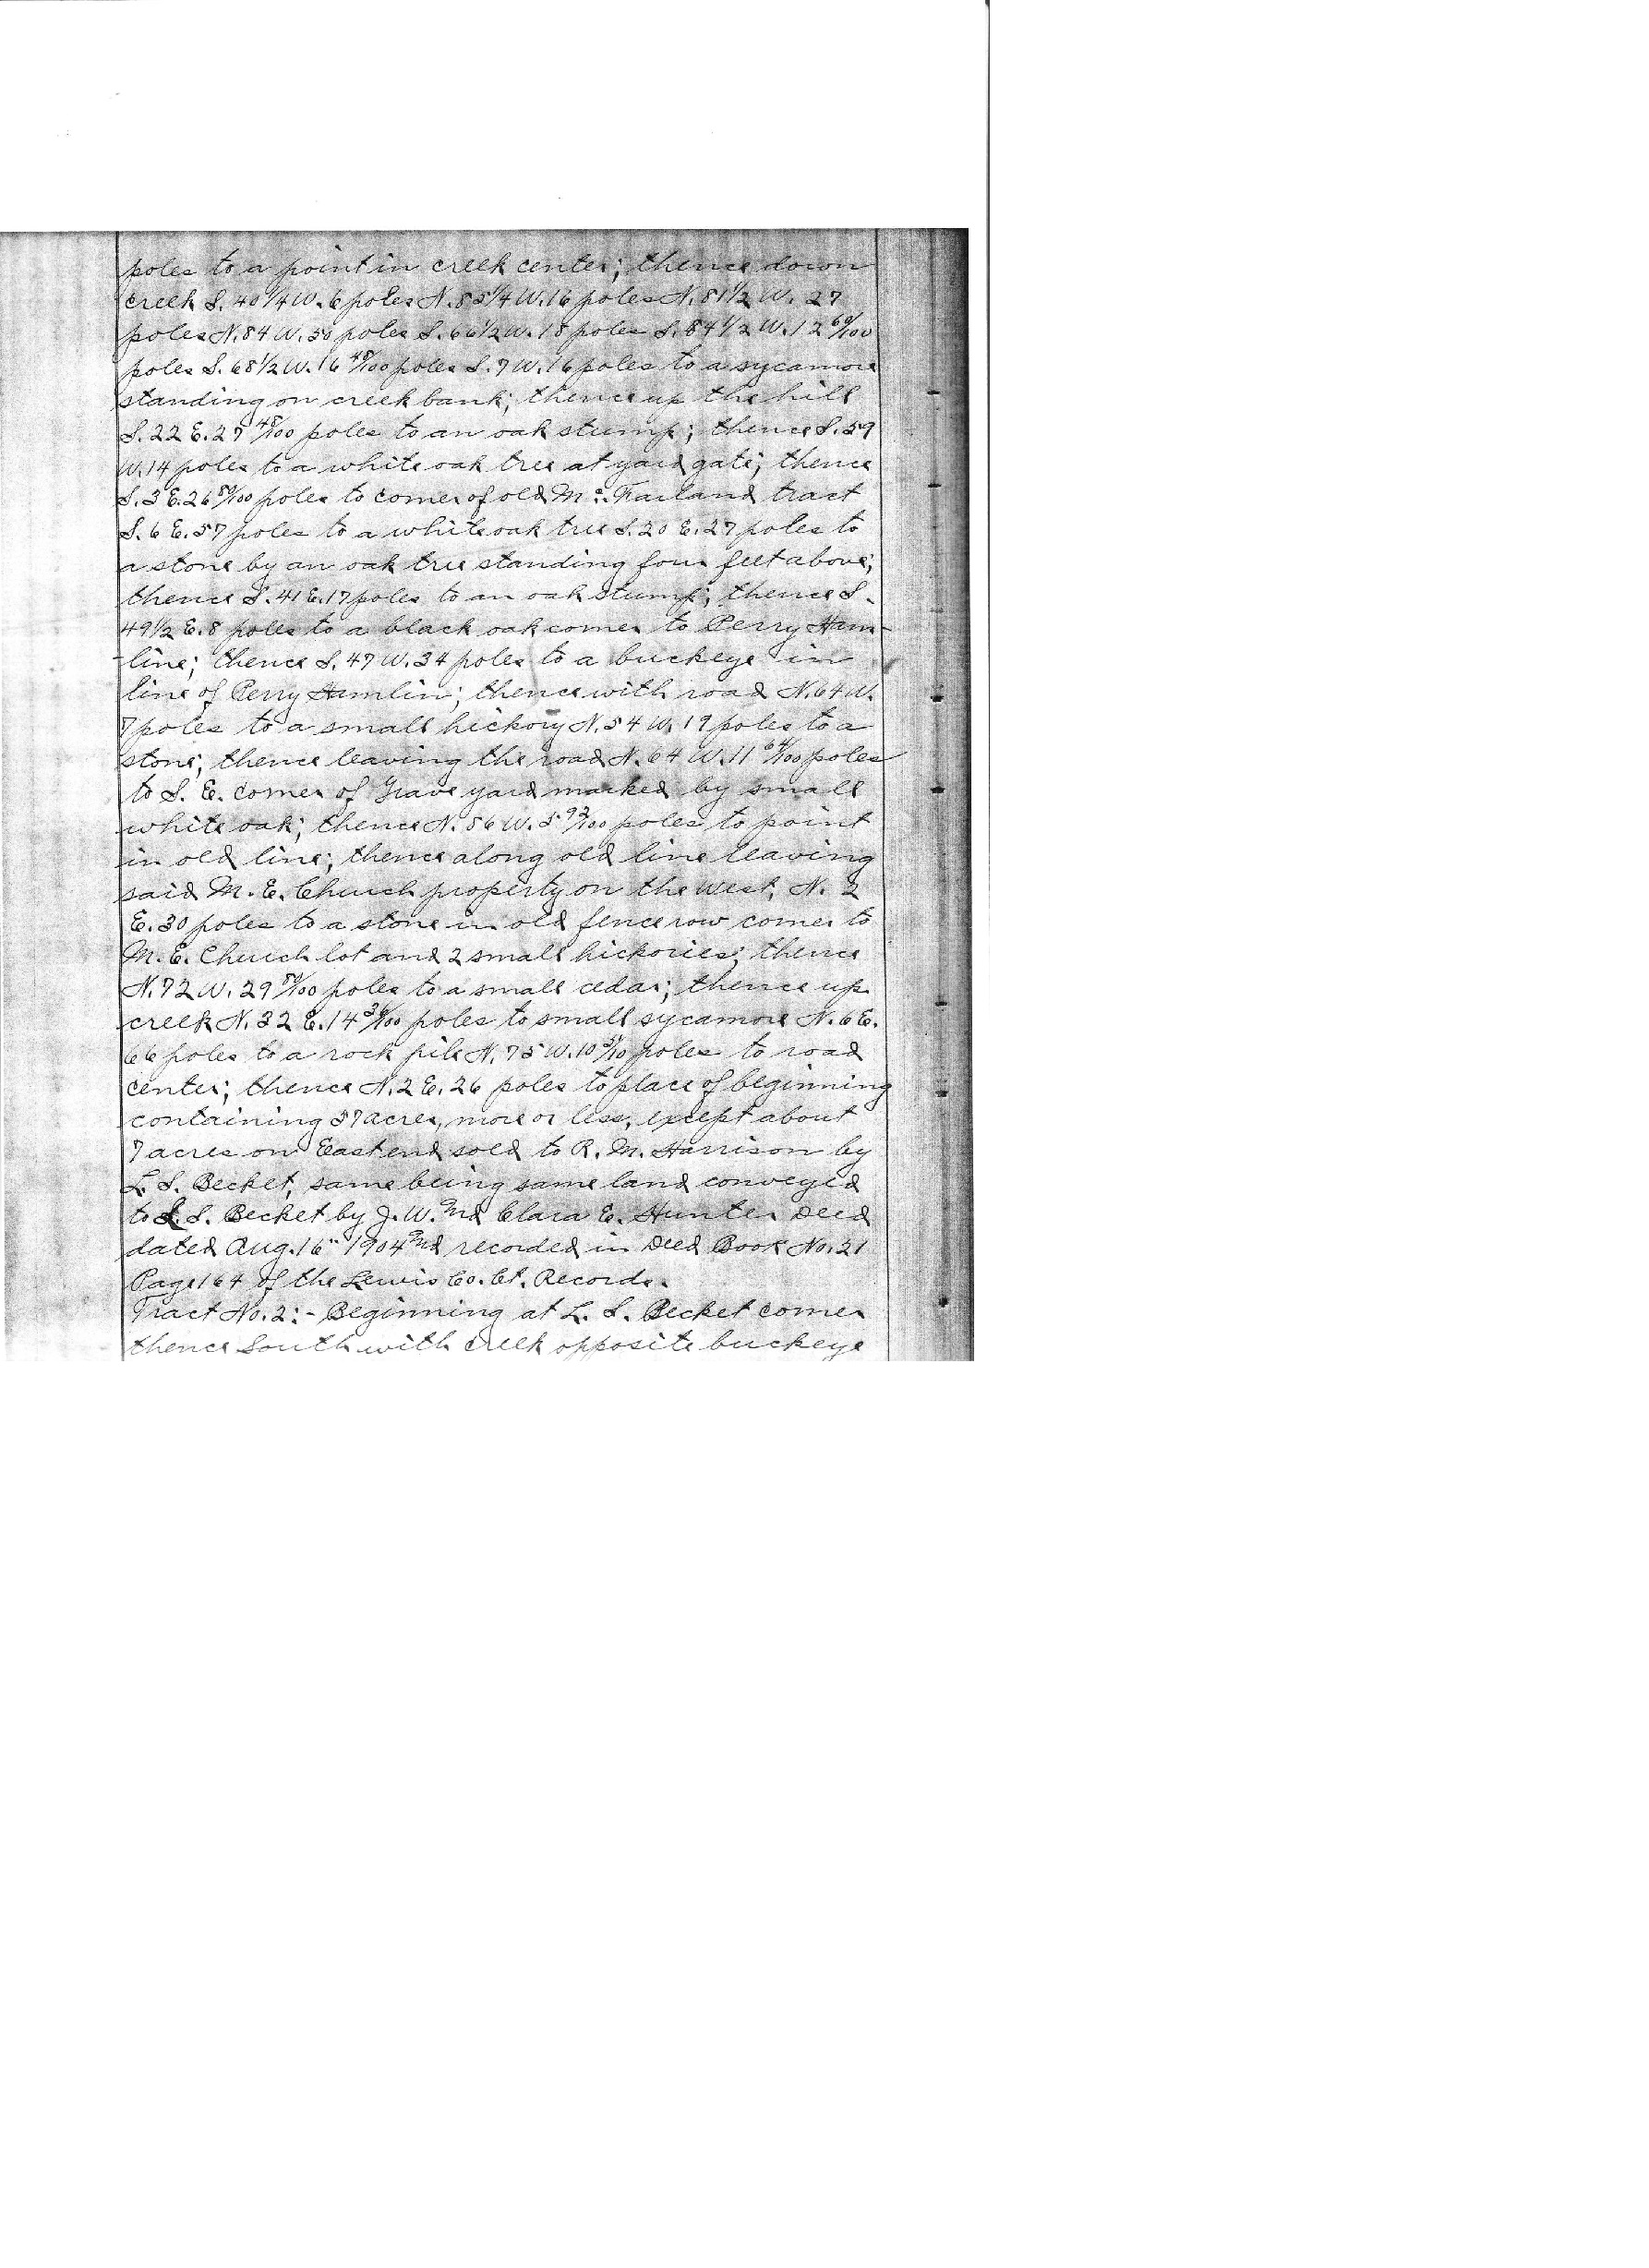 poles to a point in creek center; thence down
creek S. 40 1/4 W. 6 poles N. 85 1/4 W. 16 poles N. 81 1/2 W. 27
poles N. 84 W. 50 poles S. 66 1/2 W. 18 poles S. 84 1/2 W. 12 60/100
poles S. 68 1/2 W. 16 48/100 poles S. 7 W. 16 poles to a sycamore
standing on creek bank; thence up the hill
S. 22 E. 27 48/100 poles to an oak stump; thence S. 59
W. 14 poles to a white oak tree at yard gate; thence
S. 3 E. 26 80/100 poles to corner of old Mc Farland tract
S. 6 E. 57 poles to a white oak tree S. 20 E. 27 poles to
a stone by an oak tree standing four feet above;
thence S. 41 E. 17 poles to an oak stump; thence S.
49 1/2 E. 8 poles to a black oak corner to Perry Ham-
-line; thence S. 47 W. 34 poles to a buckeye in
line of Perry Hamlin; thence with road N. 64 W.
7 poles to a small hickory N. 54 W. 19 poles to a
stone; thence leaving the road N. 64 W. 11 64/100 poles
to S. E. corner of Grave yard marked by small
white oak; thence N. 86 W. 5 92/100 poles to point
in old line; thence along old line leaving
said M. E. Church property on the west, N. 2
E. 30 poles to a stone in old fence row corner to
M. E. Church lot and 2 small hickories; thence
N. 72 W. 29 80/100 poles to a small cedar; thence up
creek N. 32 E. 14 36/100 poles to small sycamore N. 6 E.
66 poles to a rock pile N. 75 W. 10 poles to road
center; thence N. 2 E. 26 poles to place of beginning
containing 57 acres, more or less, except about
7 acres on East end sold to R. M. Harrison by
L. S. Becket, same being same land conveyed
to L. S. Becket by J. W. and Clara E. Hunter Deed
dated Aug. 16" 1904 and recorded in Deed Book No. 31
Page 164 of the Lewis Co. Ct. Records.
Tract No. 2:- Beginning at L. S. Becket corner
thence South with creek opposite buckeye